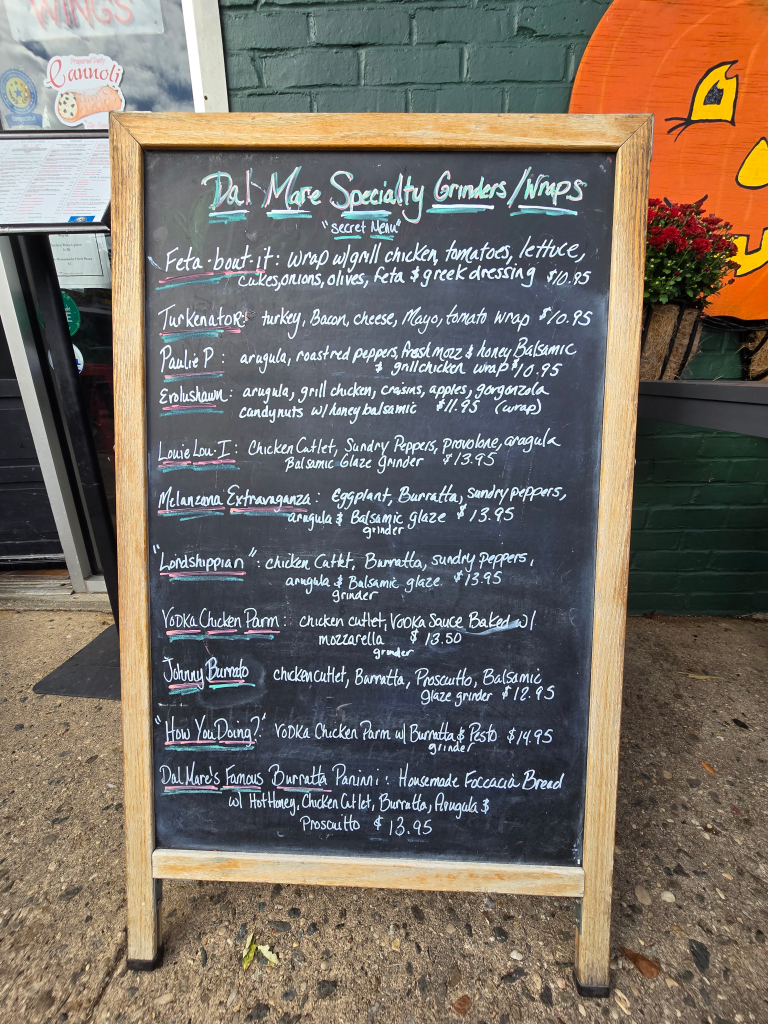 WINGS
Cannoli
Dal Mare Specialty Grinders/Wraps
"secret Menu"
Feta-bout-it: wrap w/grill chicken, tomatoes, lettuce,
cukes, onions, olives, feta & greek dressing $10.95
Turkenator: turkey, Bacon, cheese, Mayo, tomato wrap $10.95
Paulie P: arugula, roast red peppers, fresh mozz & honey Balsamic
& grill chicken wrap $10.95
Erolushawn: arugula, grill chicken, craisins, apples, gorgonzola
candy nuts w/honey balsamic $11.95 (wrap)
Louie Lou-I: Chicken Cutlet, Sundry Peppers, provolone, arugula
Balsamic Glaze grinder $13.95
Melanzana Extravaganza: Eggplant, Burratta, sundry peppers,
arugula & Balsamic glaze $13.95
grinder
"Lordshippian": chicken Cutlet, Burratta, sundry peppers,
arugula & Balsamic glaze $13.95
grinder
Vodka Chicken Parm: chicken cutlet, Vodka Sauce Baked w/
mozzarella $13.50
grinder
Johnny Burrato chicken cutlet, Burratta, Proscuitto, Balsamic
Glaze grinder $12.95
"How You Doing?" Vodka Chicken Parm w/ Burratta & Pesto $14.95
grinder
Dal Mare's Famous Burratta Paninni: Housemade Foccacia Bread
w/ Hot Honey, Chicken Cutlet, Burratta, Arugula &
Proscuitto $13.95